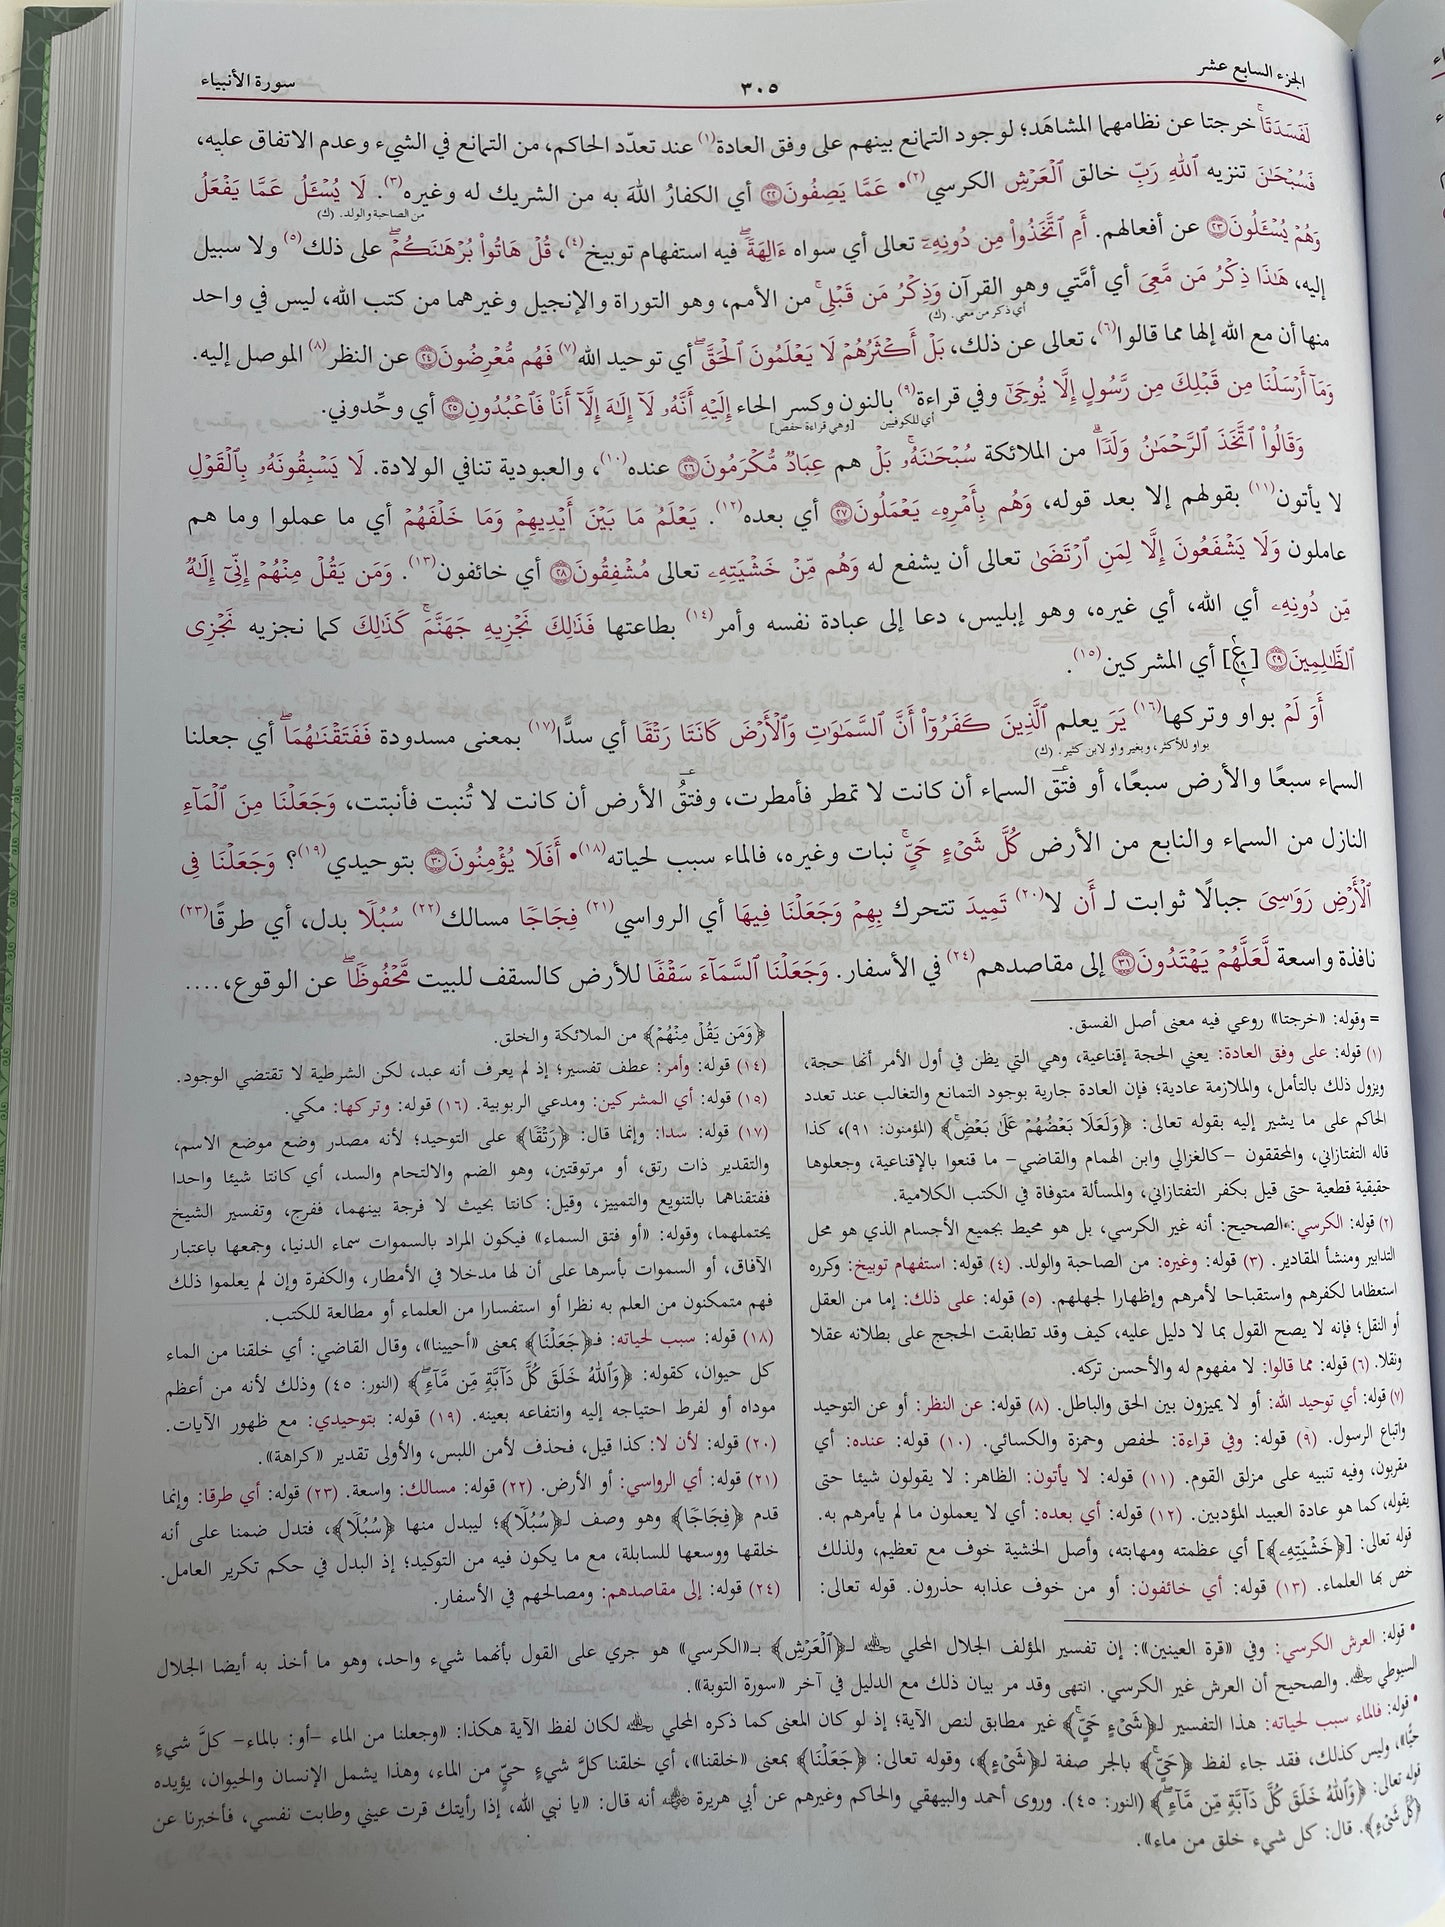 الجزء السابع عشر
٣٠٥
سورة الأنبياء
لَفَسَدَتَاۚ خرجتا عن نظامهما المشاهَد؛ لوجود التمانع بينهم على وفق العادة(١) عند تعدّد الحاكم، من التمانع في الشيء وعدم الاتفاق عليه،
فَسُبۡحَٰنَ تنزيه ٱللَّهِ رَبِّ خالق ٱلۡعَرۡشِ الكرسي(٢)• عَمَّا يَصِفُونَ ٢٢ أي الكفارُ اللهَ به من الشريك له وغيره(٣). لَا يُسۡـَٔلُ عَمَّا يَفۡعَلُ
من الصاحبة والولد. (ك)
وَهُمۡ يُسۡـَٔلُونَ ٢٣ عن أفعالهم. أَمِ ٱتَّخَذُواْ مِن دُونِهِۦٓ تعالى أي سواه ءَالِهَةٗۖ فيه استفهام توبيخ(٤)، قُلۡ هَاتُواْ بُرۡهَٰنَكُمۡۖ على ذلك(٥) ولا سبيل
إليه، هَٰذَا ذِكۡرُ مَن مَّعِيَ أي أمَّتي وهو القرآن وَذِكۡرُ مَن قَبۡلِيۚ من الأمم، وهو التوراة والإنجيل وغيرهما من كتب الله، ليس في واحد
أي ذكر من معي. (ك)
منها أن مع الله إلها مما قالوا(٦)، تعالى عن ذلك، بَلۡ أَكۡثَرُهُمۡ لَا يَعۡلَمُونَ ٱلۡحَقَّۖ أي توحيد الله(٧) فَهُم مُّعۡرِضُونَ ٢٤ عن النظر(٨) الموصل إليه.
وَمَآ أَرۡسَلۡنَا مِن قَبۡلِكَ مِن رَّسُولٍ إِلَّا يُوحَىٰٓ وفي قراءة(٩) بالنون وكسر الحاء إِلَيۡهِ أَنَّهُۥ لَآ إِلَٰهَ إِلَّآ أَنَا۠ فَٱعۡبُدُونِ ٢٥ أي وحِّدوني.
أي للكوفيين [وهي قراءة حفص]
وَقَالُواْ ٱتَّخَذَ ٱلرَّحۡمَٰنُ وَلَدٗاۗ من الملائكة سُبۡحَٰنَهُۥۚ بَلۡ هم عِبَادٞ مُّكۡرَمُونَ ٢٦ عنده(١٠)، والعبودية تنافي الولادة. لَا يَسۡبِقُونَهُۥ بِٱلۡقَوۡلِ
لا يأتون(١١) بقولهم إلا بعد قوله، وَهُم بِأَمۡرِهِۦ يَعۡمَلُونَ ٢٧ أي بعده(١٢). يَعۡلَمُ مَا بَيۡنَ أَيۡدِيهِمۡ وَمَا خَلۡفَهُمۡ أي ما عملوا وما هم
عاملون وَلَا يَشۡفَعُونَ إِلَّا لِمَنِ ٱرۡتَضَىٰ تعالى أن يشفع له وَهُم مِّنۡ خَشۡيَتِهِۦ تعالى مُشۡفِقُونَ ٢٨ أي خائفون(١٣). وَمَن يَقُلۡ مِنۡهُمۡ إِنِّيٓ إِلَٰهٞ
مِّن دُونِهِۦ أي الله، أي غيره، وهو إبليس، دعا إلى عبادة نفسه وأمر(١٤) بطاعتها فَذَٰلِكَ نَجۡزِيهِ جَهَنَّمَۚ كَذَٰلِكَ كما نجزيه نَجۡزِي
ٱلظَّٰلِمِينَ ٢٩ [ع ١٩ ٢] أي المشركين(١٥).
أَوَ لَمۡ بواو وتركها(١٦) يَرَ يعلم ٱلَّذِينَ كَفَرُوٓاْ أَنَّ ٱلسَّمَٰوَٰتِ وَٱلۡأَرۡضَ كَانَتَا رَتۡقٗا أي سدًّا(١٧) بمعنى مسدودة فَفَتَقۡنَٰهُمَاۖ أي جعلنا
بواو للأكثر، وبغير واو لابن كثير. (ك)
السماء سبعًا والأرض سبعًا، أو فتق السماء أن كانت لا تمطر فأمطرت، وفتقُ الأرض أن كانت لا تُنبت فأنبتت، وَجَعَلۡنَا مِنَ ٱلۡمَآءِ
النازل من السماء والنابع من الأرض كُلَّ شَيۡءٍ حَيٍّۚ نبات وغيره، فالماء سبب لحياته(١٨)• أَفَلَا يُؤۡمِنُونَ ٣٠ بتوحيدي(١٩)؟ وَجَعَلۡنَا فِي
ٱلۡأَرۡضِ رَوَٰسِيَ جبالًا ثوابت لـ أَن لا(٢٠) تَمِيدَ تتحرك بِهِمۡ وَجَعَلۡنَا فِيهَا أي الرواسي(٢١) فِجَاجٗا مسالك(٢٢) سُبُلٗا بدل، أي طرقًا(٢٣)
نافذة واسعة لَّعَلَّهُمۡ يَهۡتَدُونَ ٣١ إلى مقاصدهم(٢٤) في الأسفار. وَجَعَلۡنَا ٱلسَّمَآءَ سَقۡفٗا للأرض كالسقف للبيت مَّحۡفُوظٗاۖ عن الوقوع، ....
= وقوله: «خرجتا» روعي فيه معنى أصل الفسق.
(١) قوله: على وفق العادة: يعني الحجة إقناعية، وهي التي يظن في أول الأمر أنها حجة،
ويزول ذلك بالتأمل، والملازمة عادية؛ فإن العادة جارية بوجود التمانع والتغالب عند تعدد
الحاكم على ما يشير إليه بقوله تعالى: ﴿وَلَعَلَا بَعۡضُهُمۡ عَلَىٰ بَعۡضٖۚ﴾ (المؤمنون: ٩١)، كذا
قاله التفتازاني، والمحققون –كالغزالي وابن الهمام والقاضي– ما قنعوا بالإقناعية، وجعلوها
حقيقية قطعية حتى قيل بكفر التفتازاني، والمسألة متوفاة في الكتب الكلامية.
(٢) قوله: الكرسي: الصحيح: أنه غير الكرسي، بل هو محيط بجميع الأجسام الذي هو محل
التدابير ومنشأ المقادير. (٣) قوله: وغيره: من الصاحبة والولد. (٤) قوله: استفهام توبيخ: وكرره
استعظاما لكفرهم واستقباحا لأمرهم وإظهارا لجهلهم. (٥) قوله: على ذلك: إما من العقل
أو النقل؛ فإنه لا يصح القول بما لا دليل عليه، كيف وقد تطابقت الحجج على بطلانه عقلا
ونقلا. (٦) قوله: مما قالوا: لا مفهوم له والأحسن تركه.
(٧) قوله: أي توحيد الله: أو لا يميزون بين الحق والباطل. (٨) قوله: عن النظر: أو عن التوحيد
واتباع الرسول. (٩) قوله: وفي قراءة: لحفص وحمزة والكسائي. (١٠) قوله: عنده: أي
مقربون، وفيه تنبيه على مزلق القوم. (١١) قوله: لا يأتون: الظاهر: لا يقولون شيئا حتى
يقوله، كما هو عادة العبيد المؤدبين. (١٢) قوله: أي بعده: أي لا يعملون ما لم يأمرهم به.
قوله تعالى: [﴿خَشۡيَتِهِۦ﴾] أي عظمته ومهابته، وأصل الخشية خوف مع تعظيم، ولذلك
خص بها العلماء. (١٣) قوله: أي خائفون: أو من خوف عذابه حذرون. قوله تعالى:
﴿وَمَن يَقُلۡ مِنۡهُمۡ﴾ من الملائكة والخلق.
(١٤) قوله: وأمر: عطف تفسير؛ إذ لم يعرف أنه عبد، لكن الشرطية لا تقتضي الوجود.
(١٥) قوله: أي المشركين: ومدعي الربوبية. (١٦) قوله: وتركها: مكي.
(١٧) قوله: سدا: وإنما قال: ﴿رَتۡقٗا﴾ على التوحيد؛ لأنه مصدر وضع موضع الاسم،
والتقدير ذات رتق، أو مرتوقتين، وهو الضم والالتحام والسد، أي كانتا شيئا واحدا
ففتقناهما بالتنويع والتمييز، وقيل: كانتا بحيث لا فرجة بينهما، ففرج، وتفسير الشيخ
يحتملهما، وقوله: «أو فتق السماء» فيكون المراد بالسموات سماء الدنيا، وجمعها باعتبار
الآفاق، أو السموات بأسرها على أن لها مدخلا في الأمطار، والكفرة وإن لم يعلموا ذلك
فهم متمكنون من العلم به نظرا أو استفسارا من العلماء أو مطالعة للكتب.
(١٨) قوله: سبب لحياته: فـ﴿جَعَلۡنَا﴾ بمعنى «أحيينا»، وقال القاضي: أي خلقنا من الماء
كل حيوان، كقوله: ﴿وَٱللَّهُ خَلَقَ كُلَّ دَآبَّةٖ مِّن مَّآءٖۖ﴾ (النور: ٤٥) وذلك لأنه من أعظم
موداه أو لفرط احتياجه إليه وانتفاعه بعينه. (١٩) قوله: بتوحيدي: مع ظهور الآيات.
(٢٠) قوله: لأن لا: كذا قيل، فحذف لأمن اللبس، والأولى تقدير «كراهة».
(٢١) قوله: أي الرواسي: أو الأرض. (٢٢) قوله: مسالك: واسعة. (٢٣) قوله: أي طرقا: وإنما
قدم ﴿فِجَاجٗا﴾ وهو وصف لـ﴿سُبُلٗا﴾؛ ليبدل منها ﴿سُبُلٗا﴾، فتدل ضمنا على أنه
خلقها ووسعها للسابلة، مع ما يكون فيه من التوكيد؛ إذ البدل في حكم تكرير العامل.
(٢٤) قوله: إلى مقاصدهم: ومصالحهم في الأسفار.
• قوله: العرش الكرسي: وفي «قرة العينين»: إن تفسير المؤلف الجلال المحلي رحمه الله لـ﴿ٱلۡعَرۡشِ﴾ بـ«الكرسي» هو جري على القول بأنهما شيء واحد، وهو ما أخذ به أيضا الجلال
السيوطي رحمه الله. والصحيح أن العرش غير الكرسي. انتهى وقد مر بيان ذلك مع الدليل في آخر «سورة التوبة».
• قوله: فالماء سبب لحياته: هذا التفسير لـ﴿شَيۡءٍ حَيٍّۚ﴾ غير مطابق لنص الآية؛ إذ لو كان المعنى كما ذكره المحلي رحمه الله لكان لفظ الآية هكذا: «وجعلنا من الماء –أو: بالماء– كلَّ شيءٍ
حيًّا»، وليس كذلك، فقد جاء لفظ ﴿حَيٍّۚ﴾ بالجر صفة لـ﴿شَيۡءٍ﴾، وقوله تعالى: ﴿جَعَلۡنَا﴾ بمعنى «خلقنا»، أي خلقنا كلَّ شيءٍ حيٍّ من الماء، وهذا يشمل الإنسان والحيوان، يؤيده
قوله تعالى: ﴿وَٱللَّهُ خَلَقَ كُلَّ دَآبَّةٖ مِّن مَّآءٖۖ﴾ (النور: ٤٥). وروى أحمد والبيهقي والحاكم وغيرهم عن أبي هريرة رضي الله عنه أنه قال: «يا نبي الله، إذا رأيتك قرت عيني وطابت نفسي، فأخبرنا عن
﴿كُلَّ شَيۡءٍ﴾. قال: كل شيء خلق من ماء».